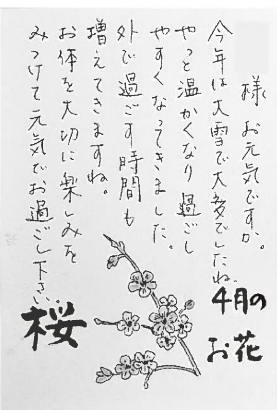 様 お元気ですか。
今年は大雪で大変でしたね。
やっと温かくなり過ごし
やすくなってきました。
外で過ごす時間も
増えてきますね。
お体を大切に楽しみを
みつけて元気でお過ごし下さい。
4月の
お花
桜